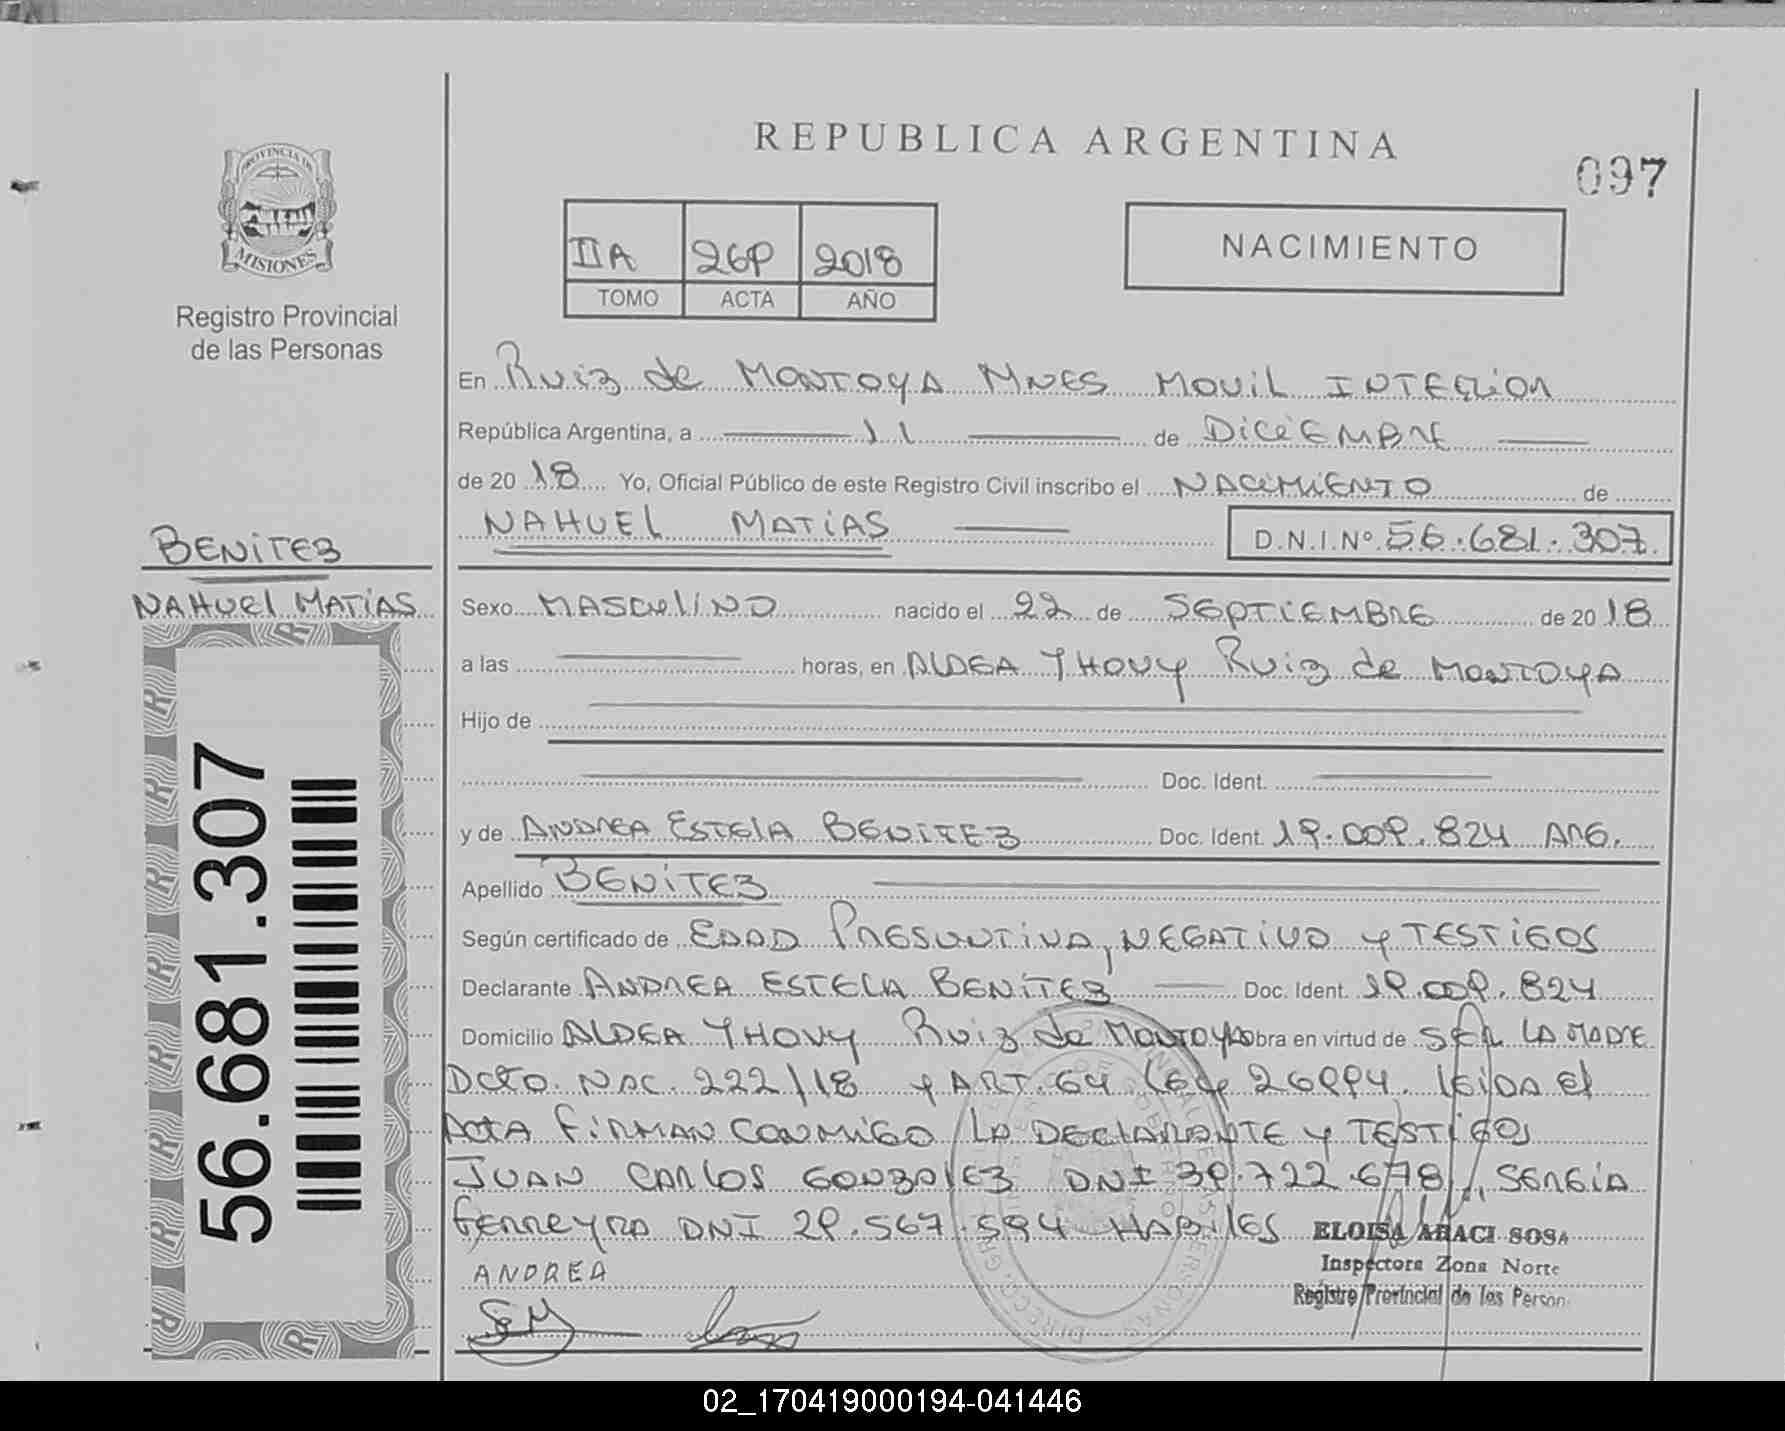 REPUBLICA ARGENTINA
097
PROVINCIA DE
MISIONES
Registro Provincial
de las Personas
IIA 269 2018
TOMO ACTA AÑO
NACIMIENTO
En Ruiz de MONTOYA MNES MOVIL INTERIOR
República Argentina, a 11 de DICIEMBRE
de 2018 Yo, Oficial Público de este Registro Civil inscribo el NACIMIENTO de
NAHUEL MATIAS D.N.I.Nº 56.681.307
BENITEZ
NAHUEL MATIAS
Sexo MASCULINO nacido el 22 de SEPTIEMBRE de 2018
a las horas, en ALDEA YHOVY Ruiz de MONTOYA
Hijo de
Doc. Ident.
y de ANDREA ESTELA BENITEZ Doc. Ident. 19.009.824 ARG.
Apellido BENITEZ
Según certificado de EDAD PRESUNTIVA, NEGATIVO y TESTIGOS
Declarante ANDREA ESTELA BENITEZ Doc. Ident. 19.009.824
Domicilio ALDEA YHOVY Ruiz de MONTOYA obra en virtud de SER LA MADRE
DCTO. NAC. 222/18 y ART. 64 LEY 26994. LEIDA El
ACTA FIRMAN CONMIGO LA DECLARANTE y TESTIGOS
JUAN CARLOS GONZALEZ DNI 39.722.678, SERGIA
FERREYRA DNI 29.567.594 HABILES
ELOISA ARACI SOSA
Inspectora Zona Norte
Registro Provincial de las Person.
ANDREA
56.681.307
02_170419000194-041446